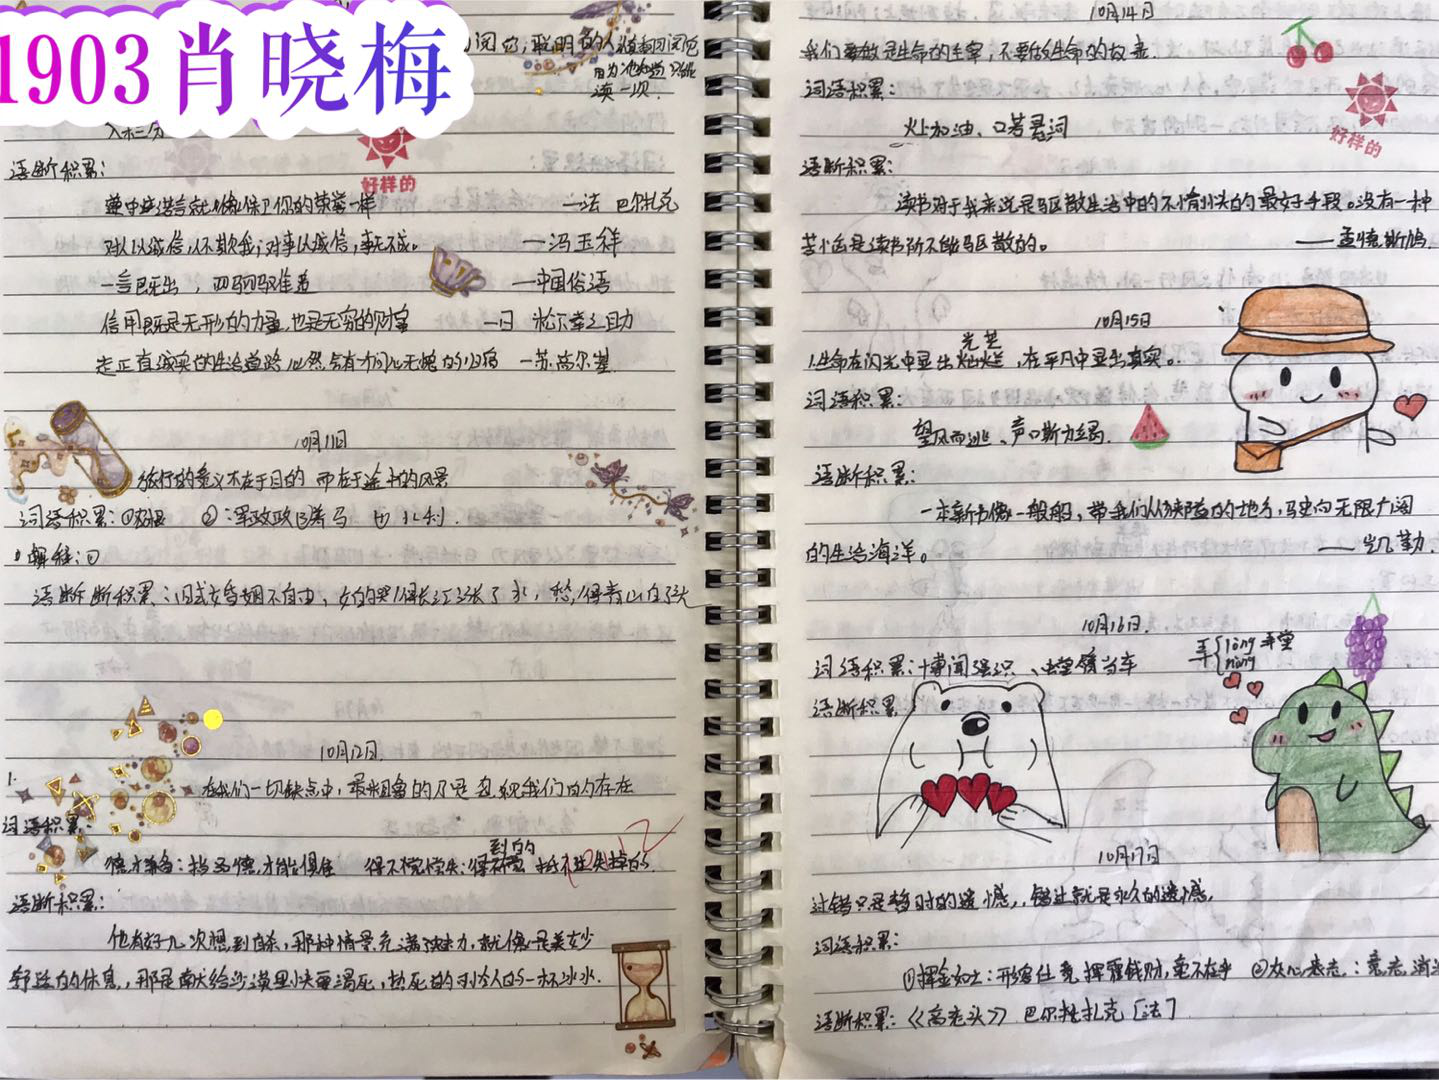 1903肖晓梅
阅它,聪明的人
因为他知道只能
读一次.
入木三分
好样的
语断积累:
遵守诺言就像保卫你的荣誉一样 —法 巴尔扎克
对人以诚信,人不欺我;对事以诚信,事无不成。 ——冯玉祥
一言既出,驷马难追 —中国俗语
信用既是无形的力量,也是无穷的财富 —日 松下幸之助
走正直诚实的生活道路,必然会有问心无愧的归宿 —苏.高尔基.
10月11日
旅行的意义不在于目的 而在于途中的风景
词语积累:①
①解释:①
语断断积累:旧式婚姻不自由,女的哭得长江涨了水,愁得青山白了头
10月12日.
1.
在我们一切缺点中,最粗鲁的乃是忽视我们的存在
词语积累:
到的
德才兼备:指 德,才能俱佳 得不偿失:得 抵不过失掉的.
语断积累:
他有好几次想到自杀,那种情景充满魅力,就像一是美妙
舒适的休息,那是献给沙漠里快要渴死,热死的 人的一杯冰水.
10月14日
我们要做生命的主宰,不要做生命的奴隶.
词语积累:
火上加油、口若悬河
好样的
语断积累:
读书对于我来说是驱散生活中的不愉快的最好手段。没有一种
苦恼是读书所不能驱散的。 ——孟德斯鸠.
10月15日
光芒
1.生命在闪光中显出灿烂,在平凡中显出真实。
词语积累:
望风而逃、声嘶力竭.
语断积累:
一本新书像一艘船,带我们从狭隘的地方,驶向无限广阔
的生活海洋。 ——凯勒.
10月16日.
弄{lòng 弄堂
nòng
词语积累:博闻强识、螳臂当车
语断积累
10月17日
过错只是暂时的遗憾,,错过就是永久的遗憾,
词语积累:
①挥金如土:形容任意挥霍钱财,毫不在乎 ②
语断积累:《高老头》 巴尔扎克[法]